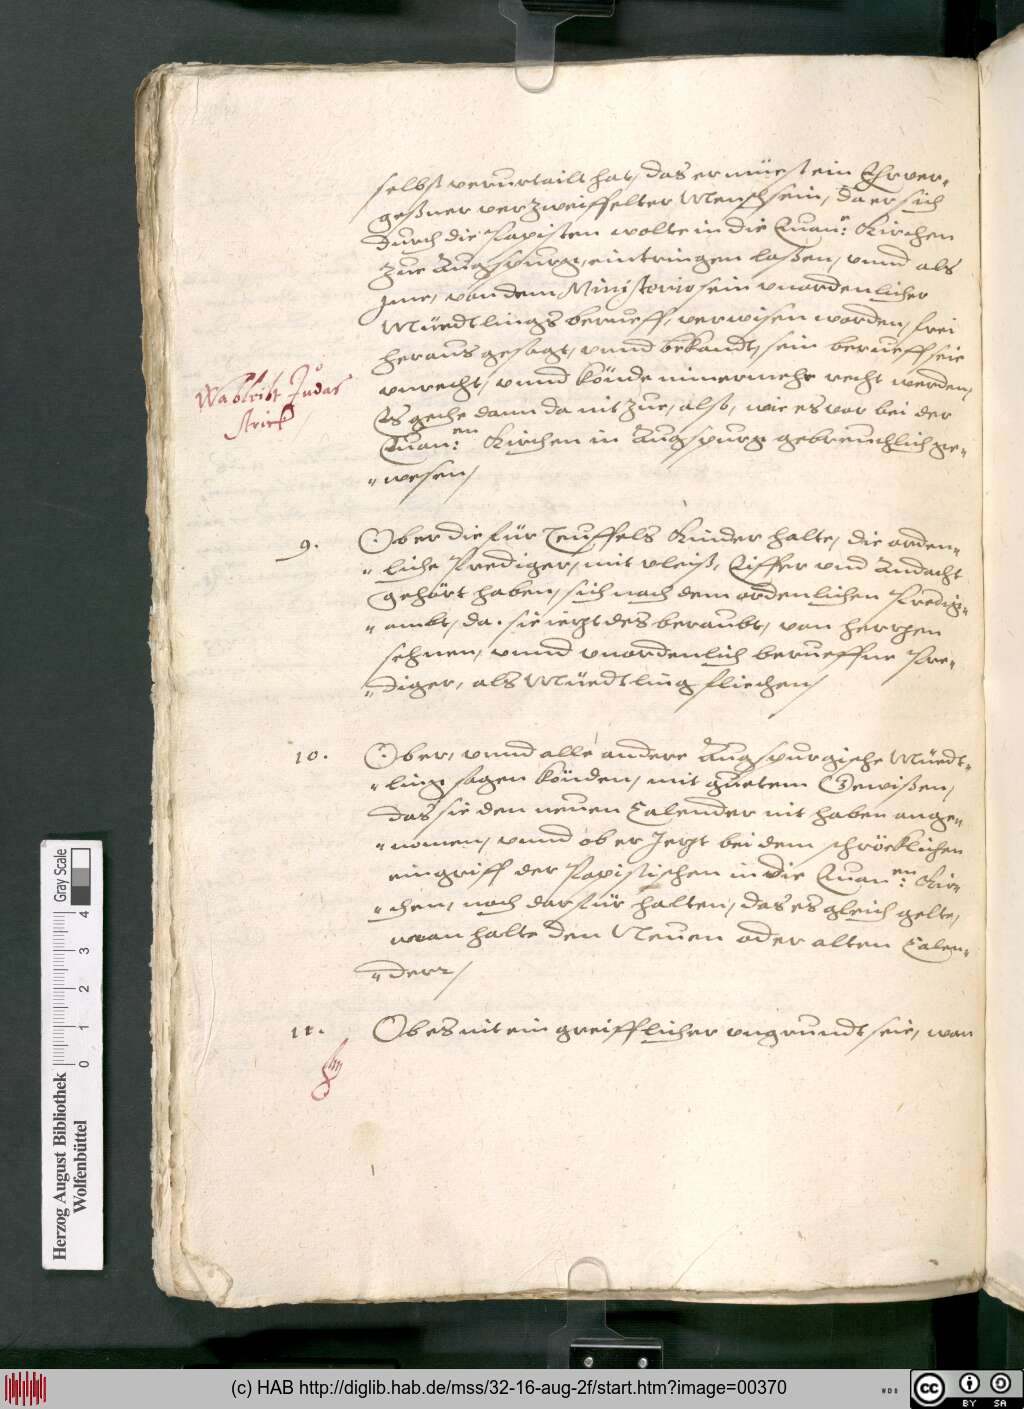 selbst verurtailt hat, das er müest ein Ehrver-
geßner verzweiffelter Mensch sein, da er sich
durch die Papisten wolte in die Euan: Kirchen
zue Augspurg, eintringen laßen, vnnd als
jme, von dem Ministerio sein vnordenlicher
Müedtlings berueff, verwisen worden, frei
heraus gesagt, vnnd bekandt, sein berueff seie
vnrecht, vnnd könde nimermehr recht werden,
Es gehe dann da nit zue, alß, wie es vor bei der
Euan:en Kirchen in Augspurg gebreuchlich ge-
wesen,
Wa bleibt Judas
strick
9. Ob er die für Teuffels Kinder halte, die orden-
liche Prediger, mit vleiß, Eiffer vnd Andacht
gehört haben, sich nach dem ordenlichen Predig-
ambt, da sie ietzt des beraubt, von hertzen
sehnen, vnnd vnordenlich berueffne Pre-
diger, als Müedtling fliehen,
10. Ob er, vnnd alle andere Augspurgische Müedt-
ling sagen könden, mit guetem Gewißen,
das sie den neuen Calender nit haben ange-
nomen, vnnd ob er Jetzt bei dem schröcklichen
eingriff der Papistischen in die Euan:en Kir-
chen, noch darfür halten, das es gleich gelte,
man halte den Neuen oder alten Calen-
der,
11. Ob es nit ein greifflicher vngrundt seie, wan
Herzog August Bibliothek
Wolfenbüttel
Gray Scale
0 1 2 3 4
(c) HAB http://diglib.hab.de/mss/32-16-aug-2f/start.htm?image=00370
WDB
cc BY SA